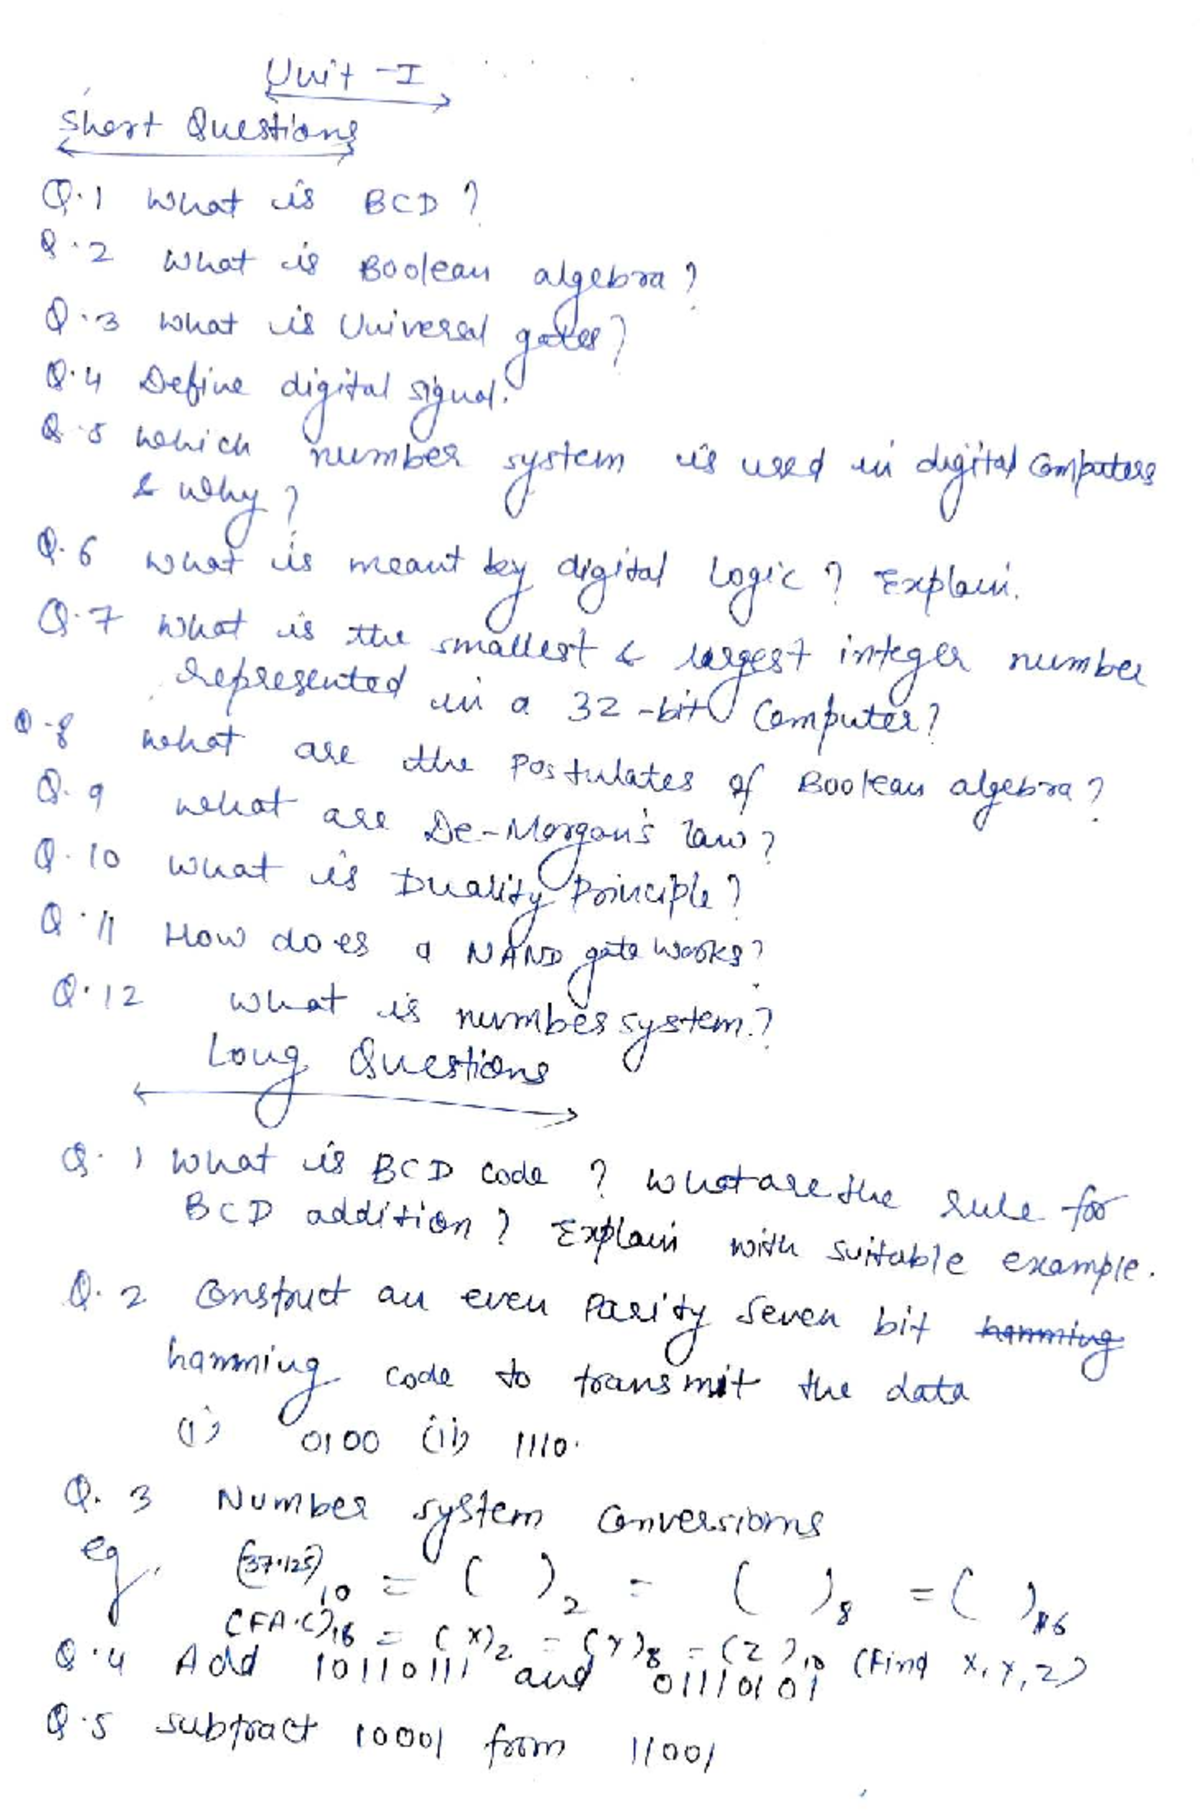 Unit - I
Short Questions
Q.1 What is BCD ?
Q.2 What is Boolean algebra?
Q.3 What is Universal gates?
Q.4 Define digital signal.
Q.5 Which number system is used in digital Computers
& why?
Q.6 What is meant by digital Logic? Explain.
Q.7 What is the smallest & largest integer number
represented in a 32-bit Computer?
Q.8 What are the Postulates of Boolean algebra?
Q.9 What are De-Morgan's law?
Q.10 What is Duality Principle?
Q.11 How does a NAND gate works?
Q.12 What is number system?
Long Questions
Q.1 What is BCD code ? What are the rule for
BCD addition? Explain with suitable example.
Q.2 Construct an even Parity Seven bit hamming
hamming code to transmit the data
(i) 0100 (ii) 1110.
Q.3 Number system Conversions
eg. (37.125)10 = ( )2 = ( )8 = ( )16
(FA.C)16 = (X)2 = (Y)8 = (Z)10 (Find X,Y,Z)
Q.4 Add 10110111 and 01110101
Q.5 subtract 10001 from 11001